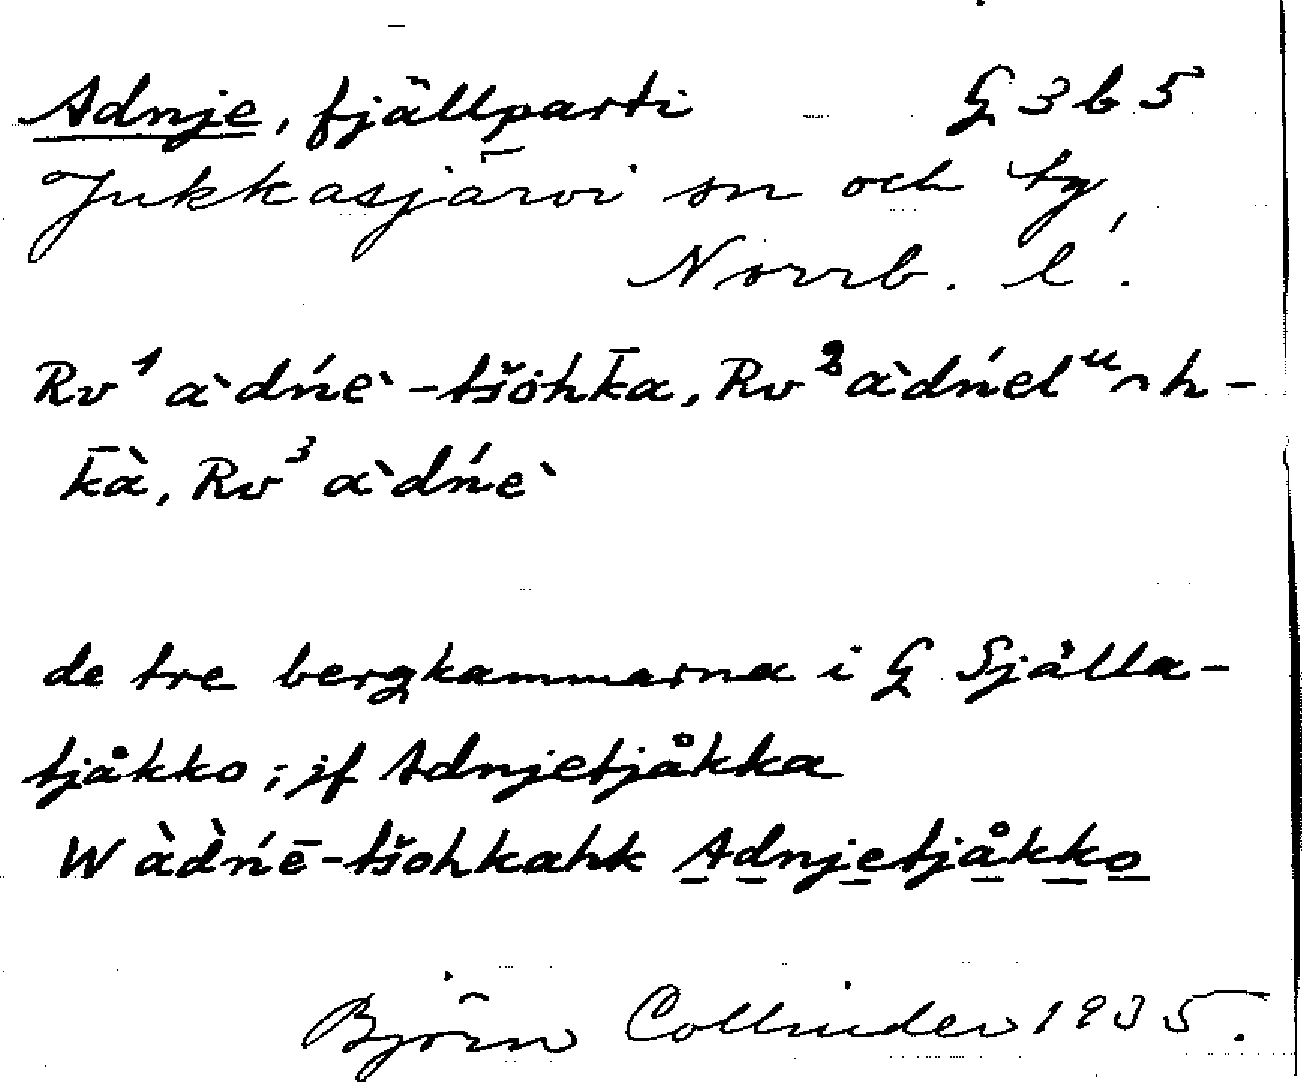 Adnje, fjällparti G 3 b 5
Jukkasjärvi sn och tg,
Norrb. l.
Rv¹ àdńè-tšohk̄a, Rv² àdńet
k̄à, Rv³ àdńè
de tre bergkammarna i G Själla-
tjåkko; jf Adnjetjåkka
W àd̀ńē-tšohkahk Adnjetjåkko
Björn Collinder 1935.